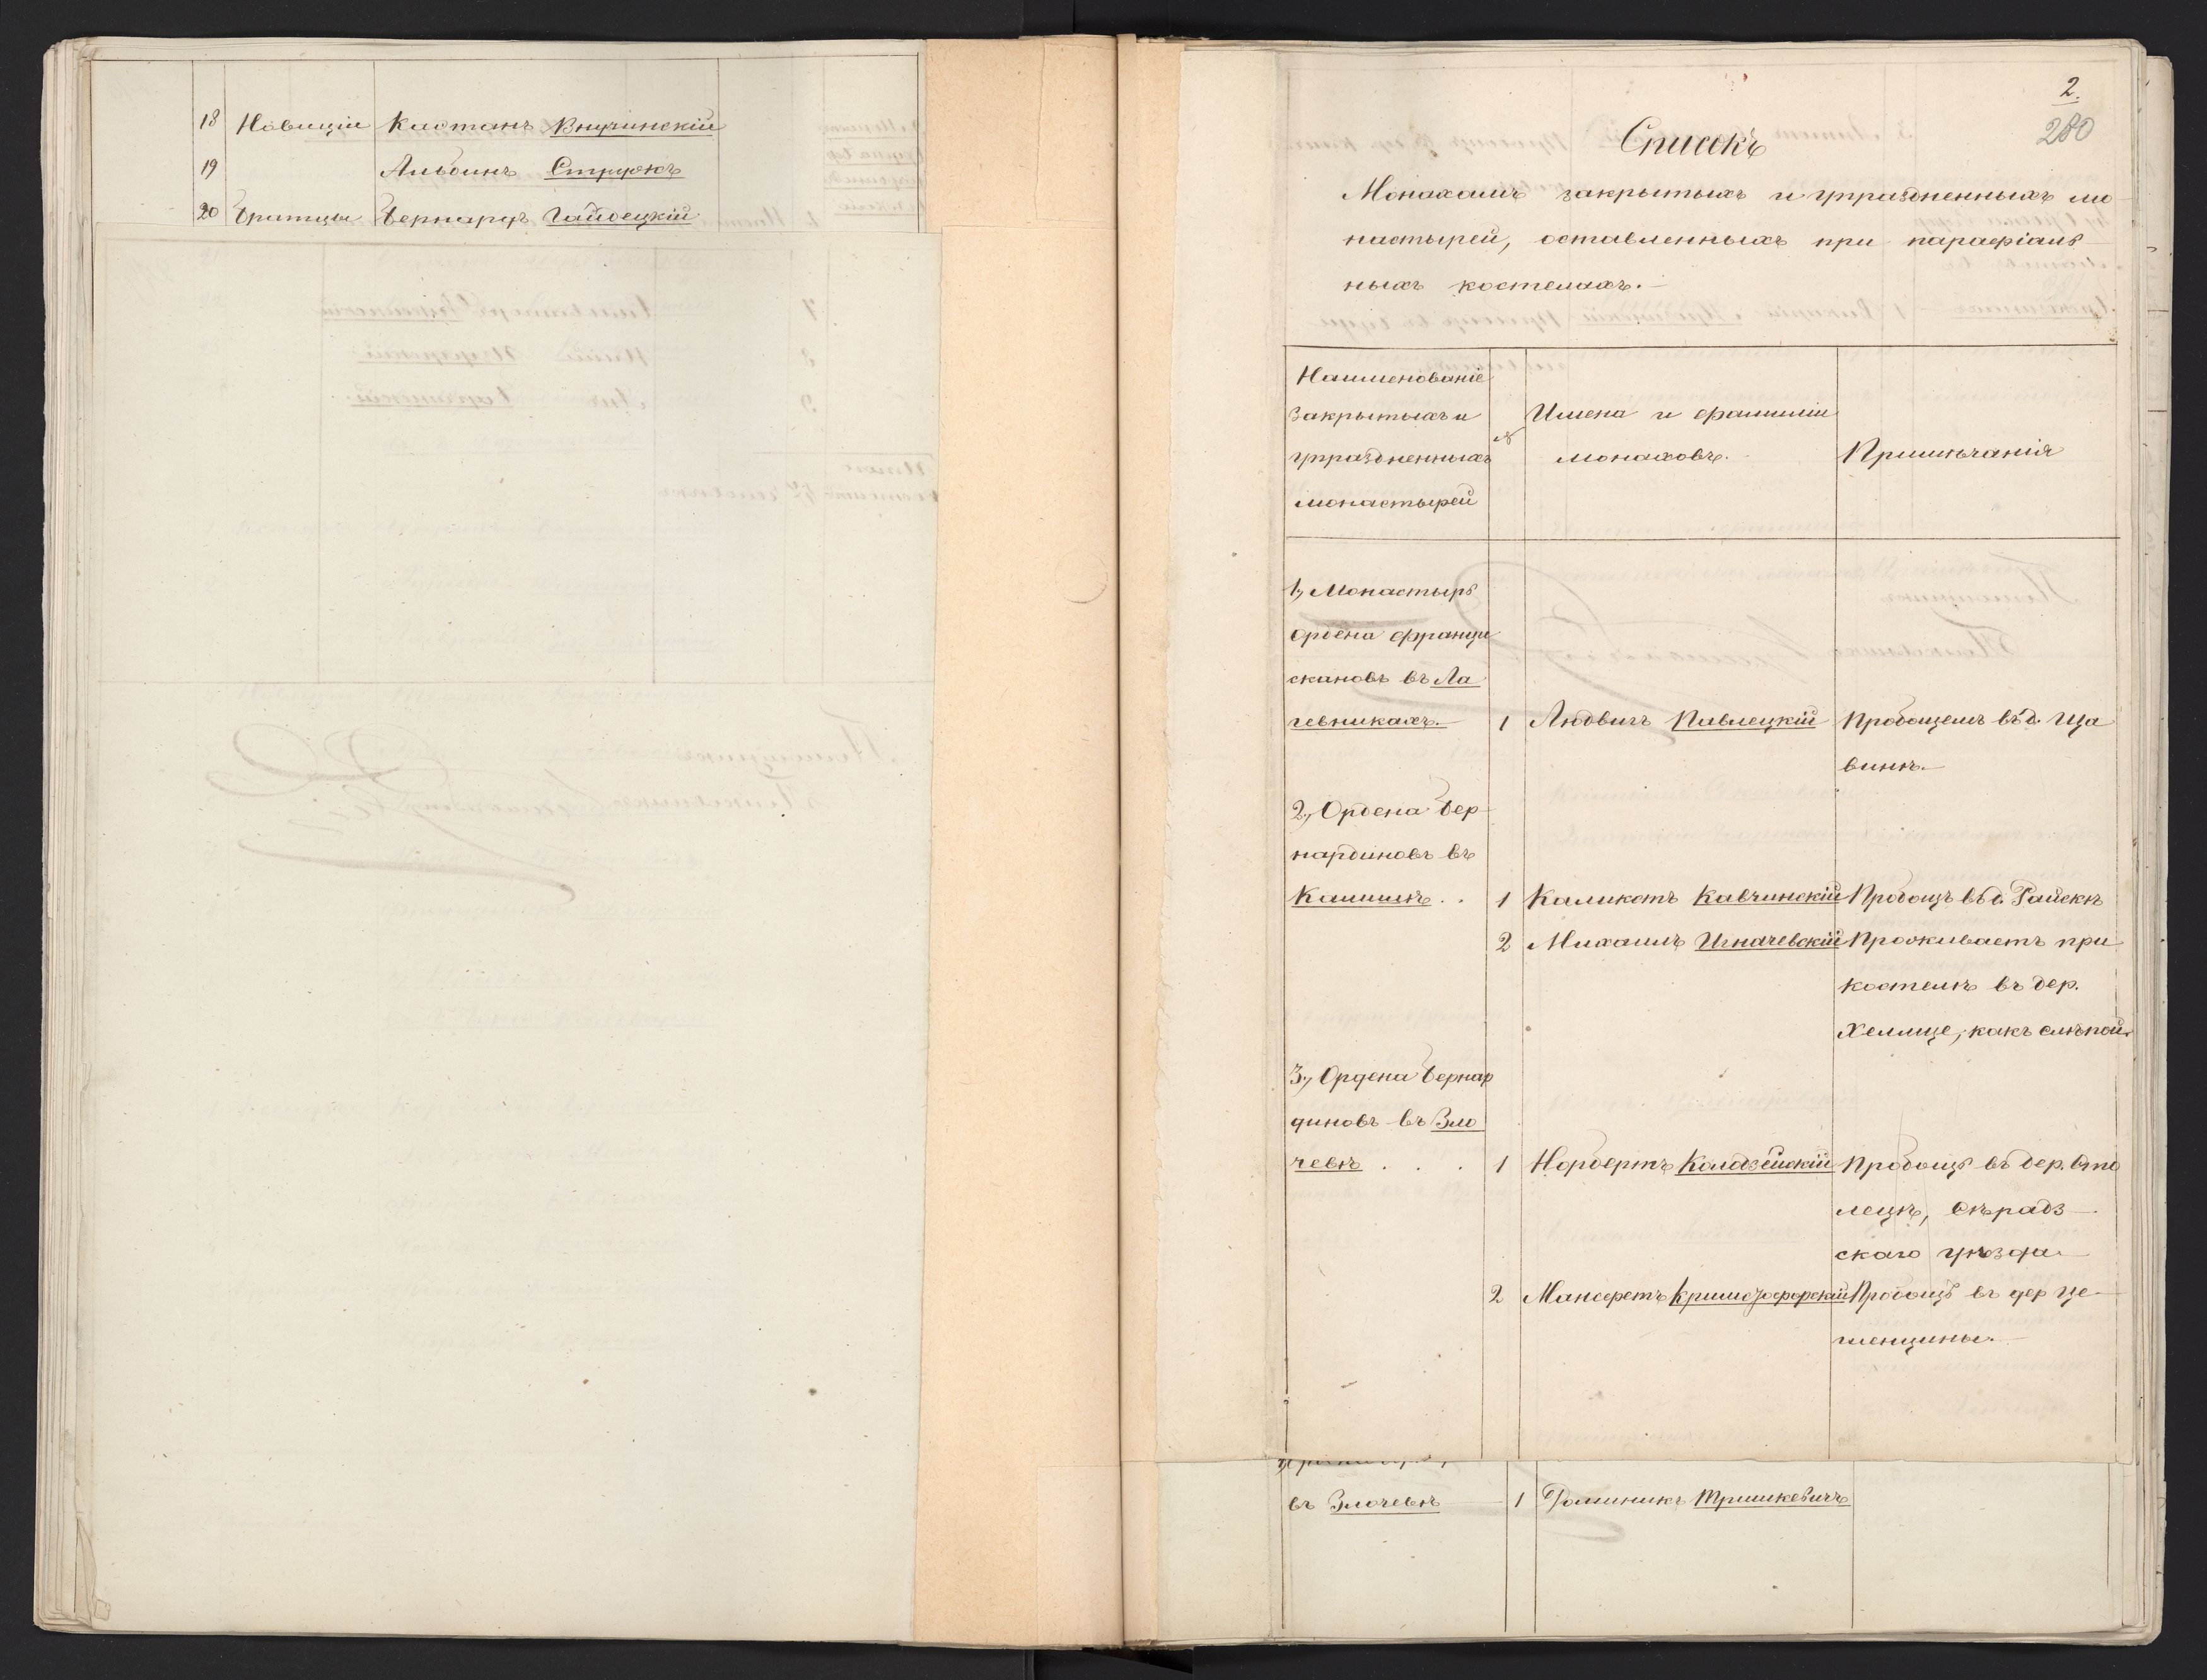 18 Новиціи Каетанъ Внучинскій
19 Альбинъ Струсъ
20 Братцы Бернардъ Гайдецкій
2.
280
Списокъ
Монахамъ закрытыхъ и упраздненныхъ мо
настырей, оставленныхъ при парафіаль
ныхъ костелахъ.
Наименованіе
закрытыхъ и
упраздненныхъ
монастырей
№
Имена и фамиліи
монаховъ.
Примѣчанія
1, Монастырь
Ордена франци
скановъ въ Ла
гевникахъ. 1 Людвигъ Павлецкій Пробощемъ въ д. Ща
винѣ.
2, Ордена Бер
нардиновъ въ
Калишѣ . . 1 Каликстъ Кавчинскій Пробощъ въ д. Райскѣ
2 Михаилъ Игначевскій Проживаетъ при
костелѣ въ дер.
Хелмце, какъ слѣпой.
3, Ордена Бернар
диновъ въ Зло
чевѣ . . . 1 Норбертъ Колдзейскій Пробощъ въ дер. Сто
лецъ, Сѣрадз
скаго уѣзда.
2 Мансфетъ Пробощъ въ дер Це
ленщины.
въ Злочевѣ 1 Доминикъ Тришкевичъ